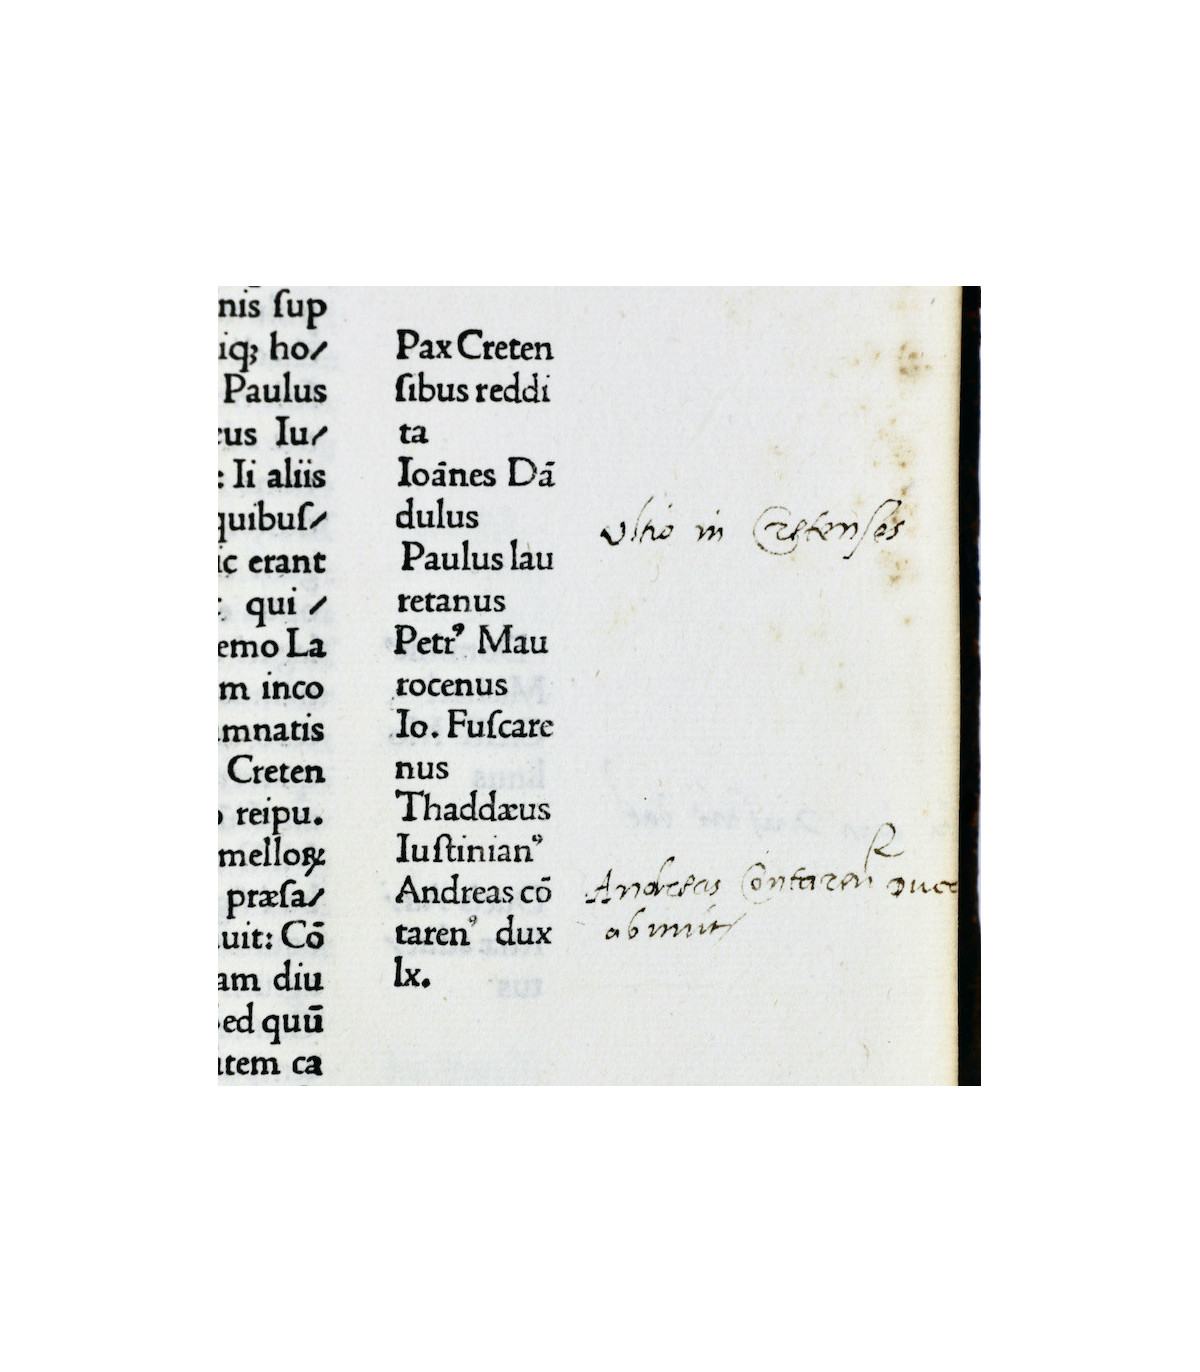 nis ſup
iq; ho/
Paulus
cus Iu/
: Ii aliis
quibuſ/
ic erant
: qui /
emo La
m inco
mnatis
Creten
o reipu.
melloꝝ
præſa/
uit: Cō
am diu
ſed quū
item ca
Pax Creten
ſibus reddi
ta
Ioānes Dā
dulus
Paulus lau
retanus
Petrꝰ Mau
rocenus
Io. Fuſcare
nus
Thaddæus
Iuſtinianꝰ
Andreas cō
tarenꝰ dux
lx.
Vltio in Cretenses
Andreas Contaren